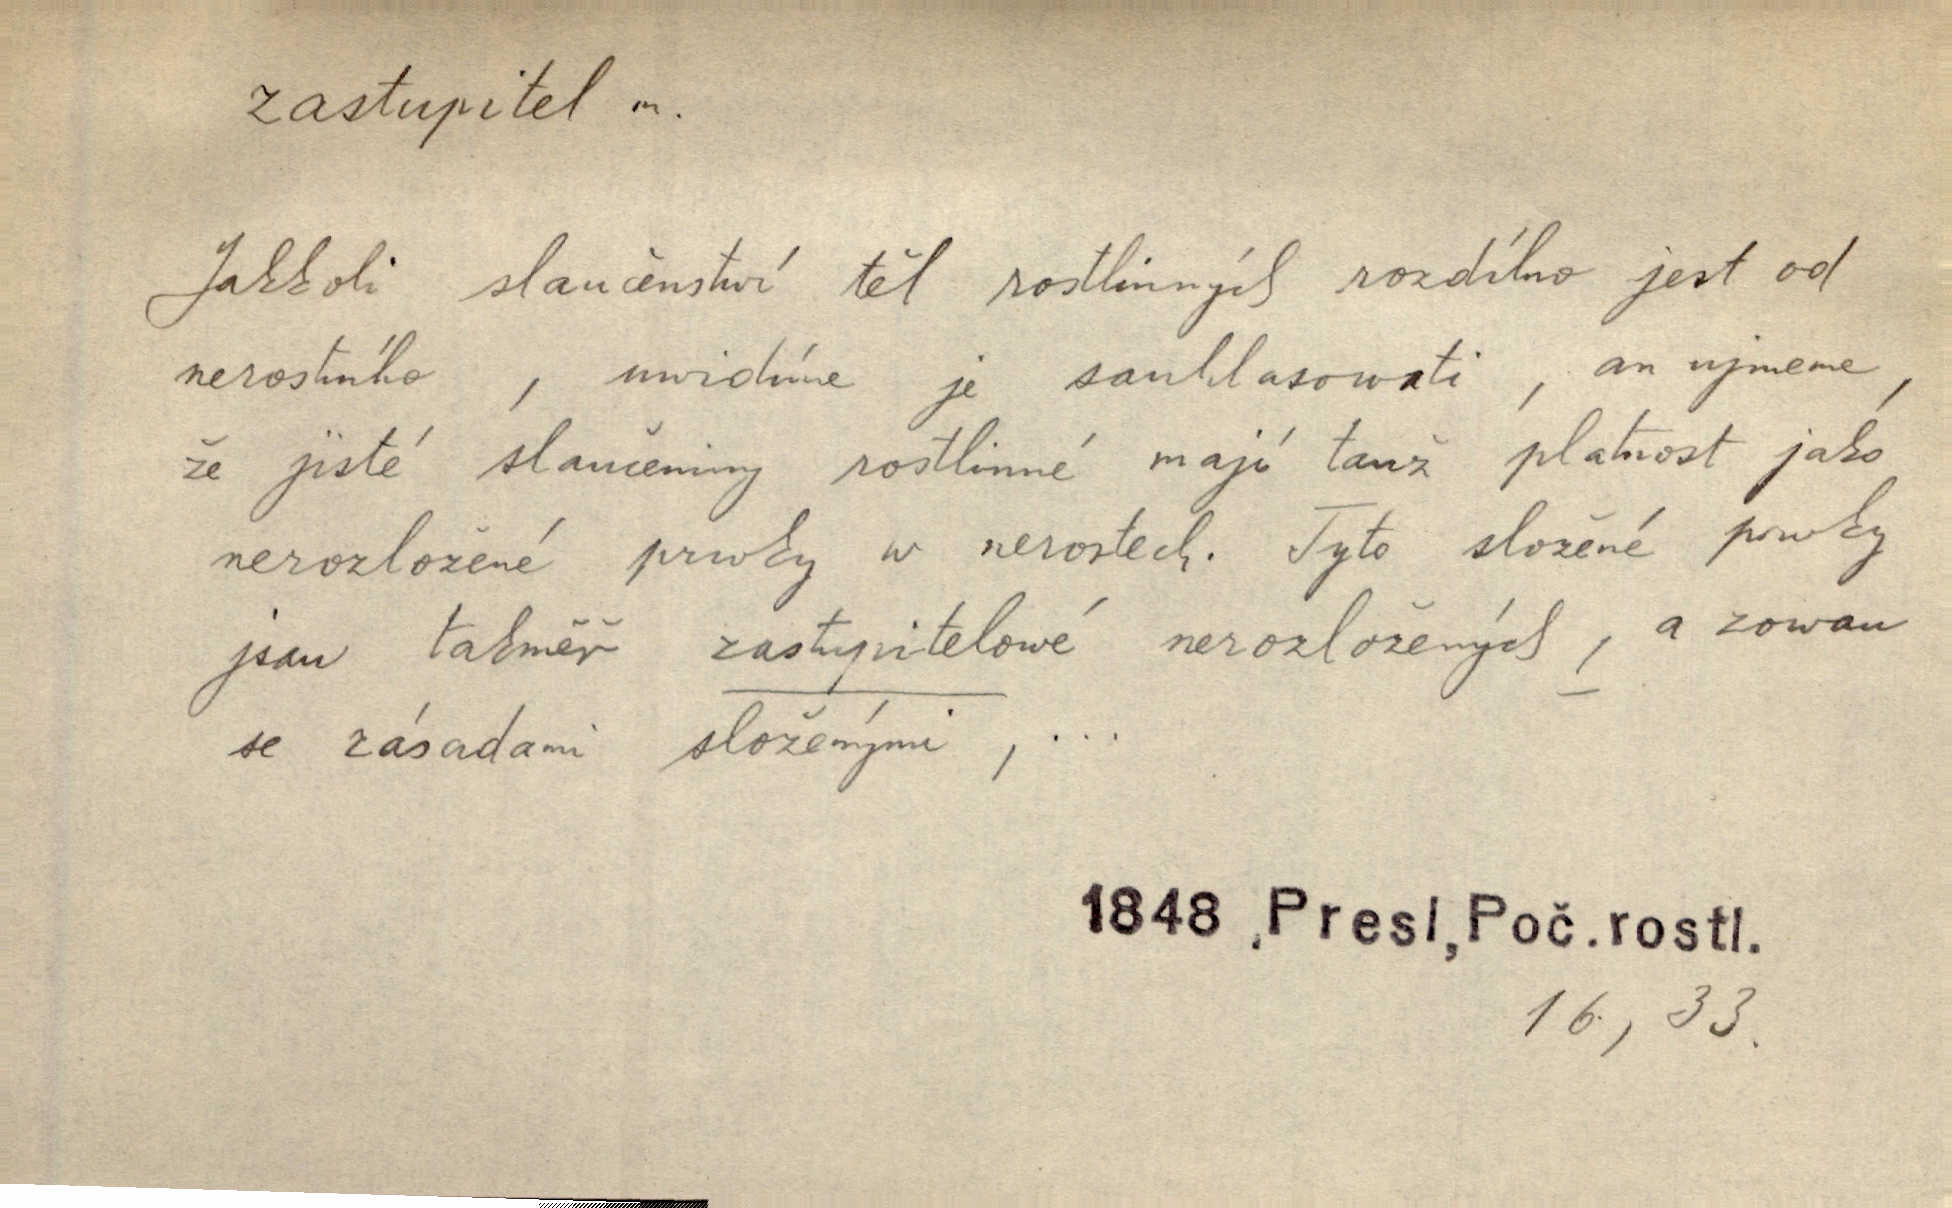 zastupitel m.
Jakkoli slaučenstwí těl rostlinných rozdílno jest od
nerostního, uwidíme je sauhlasowati, an ujmeme,
že jisté slaučeniny rostlinné mají tauž platnost jako
nerozložené prwky w nerostech. Tyto složené prwky
jsau takměř zastupitelowé nerozložených, a zowau
se zásadami složenými, ...
1848, Presl, Poč. rostl.
16, 33.